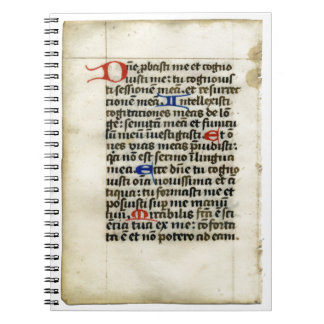 Dñe ꝓbasti me et cogno
uisti me: tu cognouis
ti sessionē meā. et resurrec
tionē meā. Intellexisti
cogitationes meas de lō
ge: semitam meā et funicu
lum meū inuestigasti. Et ō
nes vias meas p̄uidisti:
q̄a non est sermo ī lingua
mea. Ecce dñe tu cogno
uisti oīa nouissima et a
tiqua: tu formasti me et
posuisti sup me manū
tuā. Mirabilis fc̄ā ē sci
ētia tua ex me: cōforta
ta ē et nō potero ad eam.